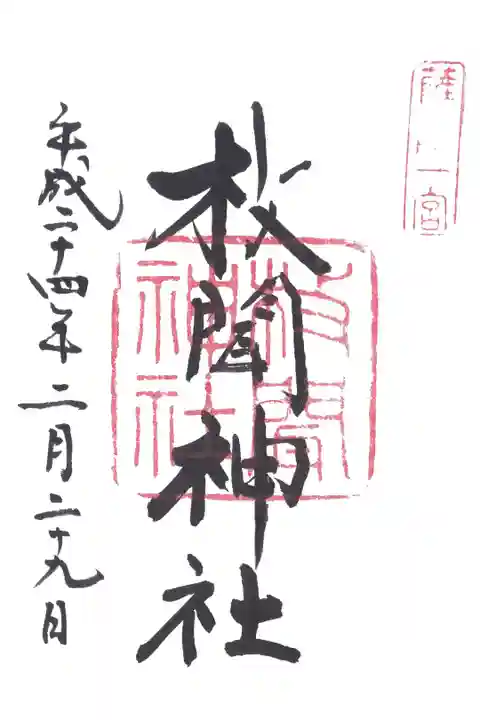 薩 一宮
枚聞神社
枚聞神社
平成二十四年二月二十九日